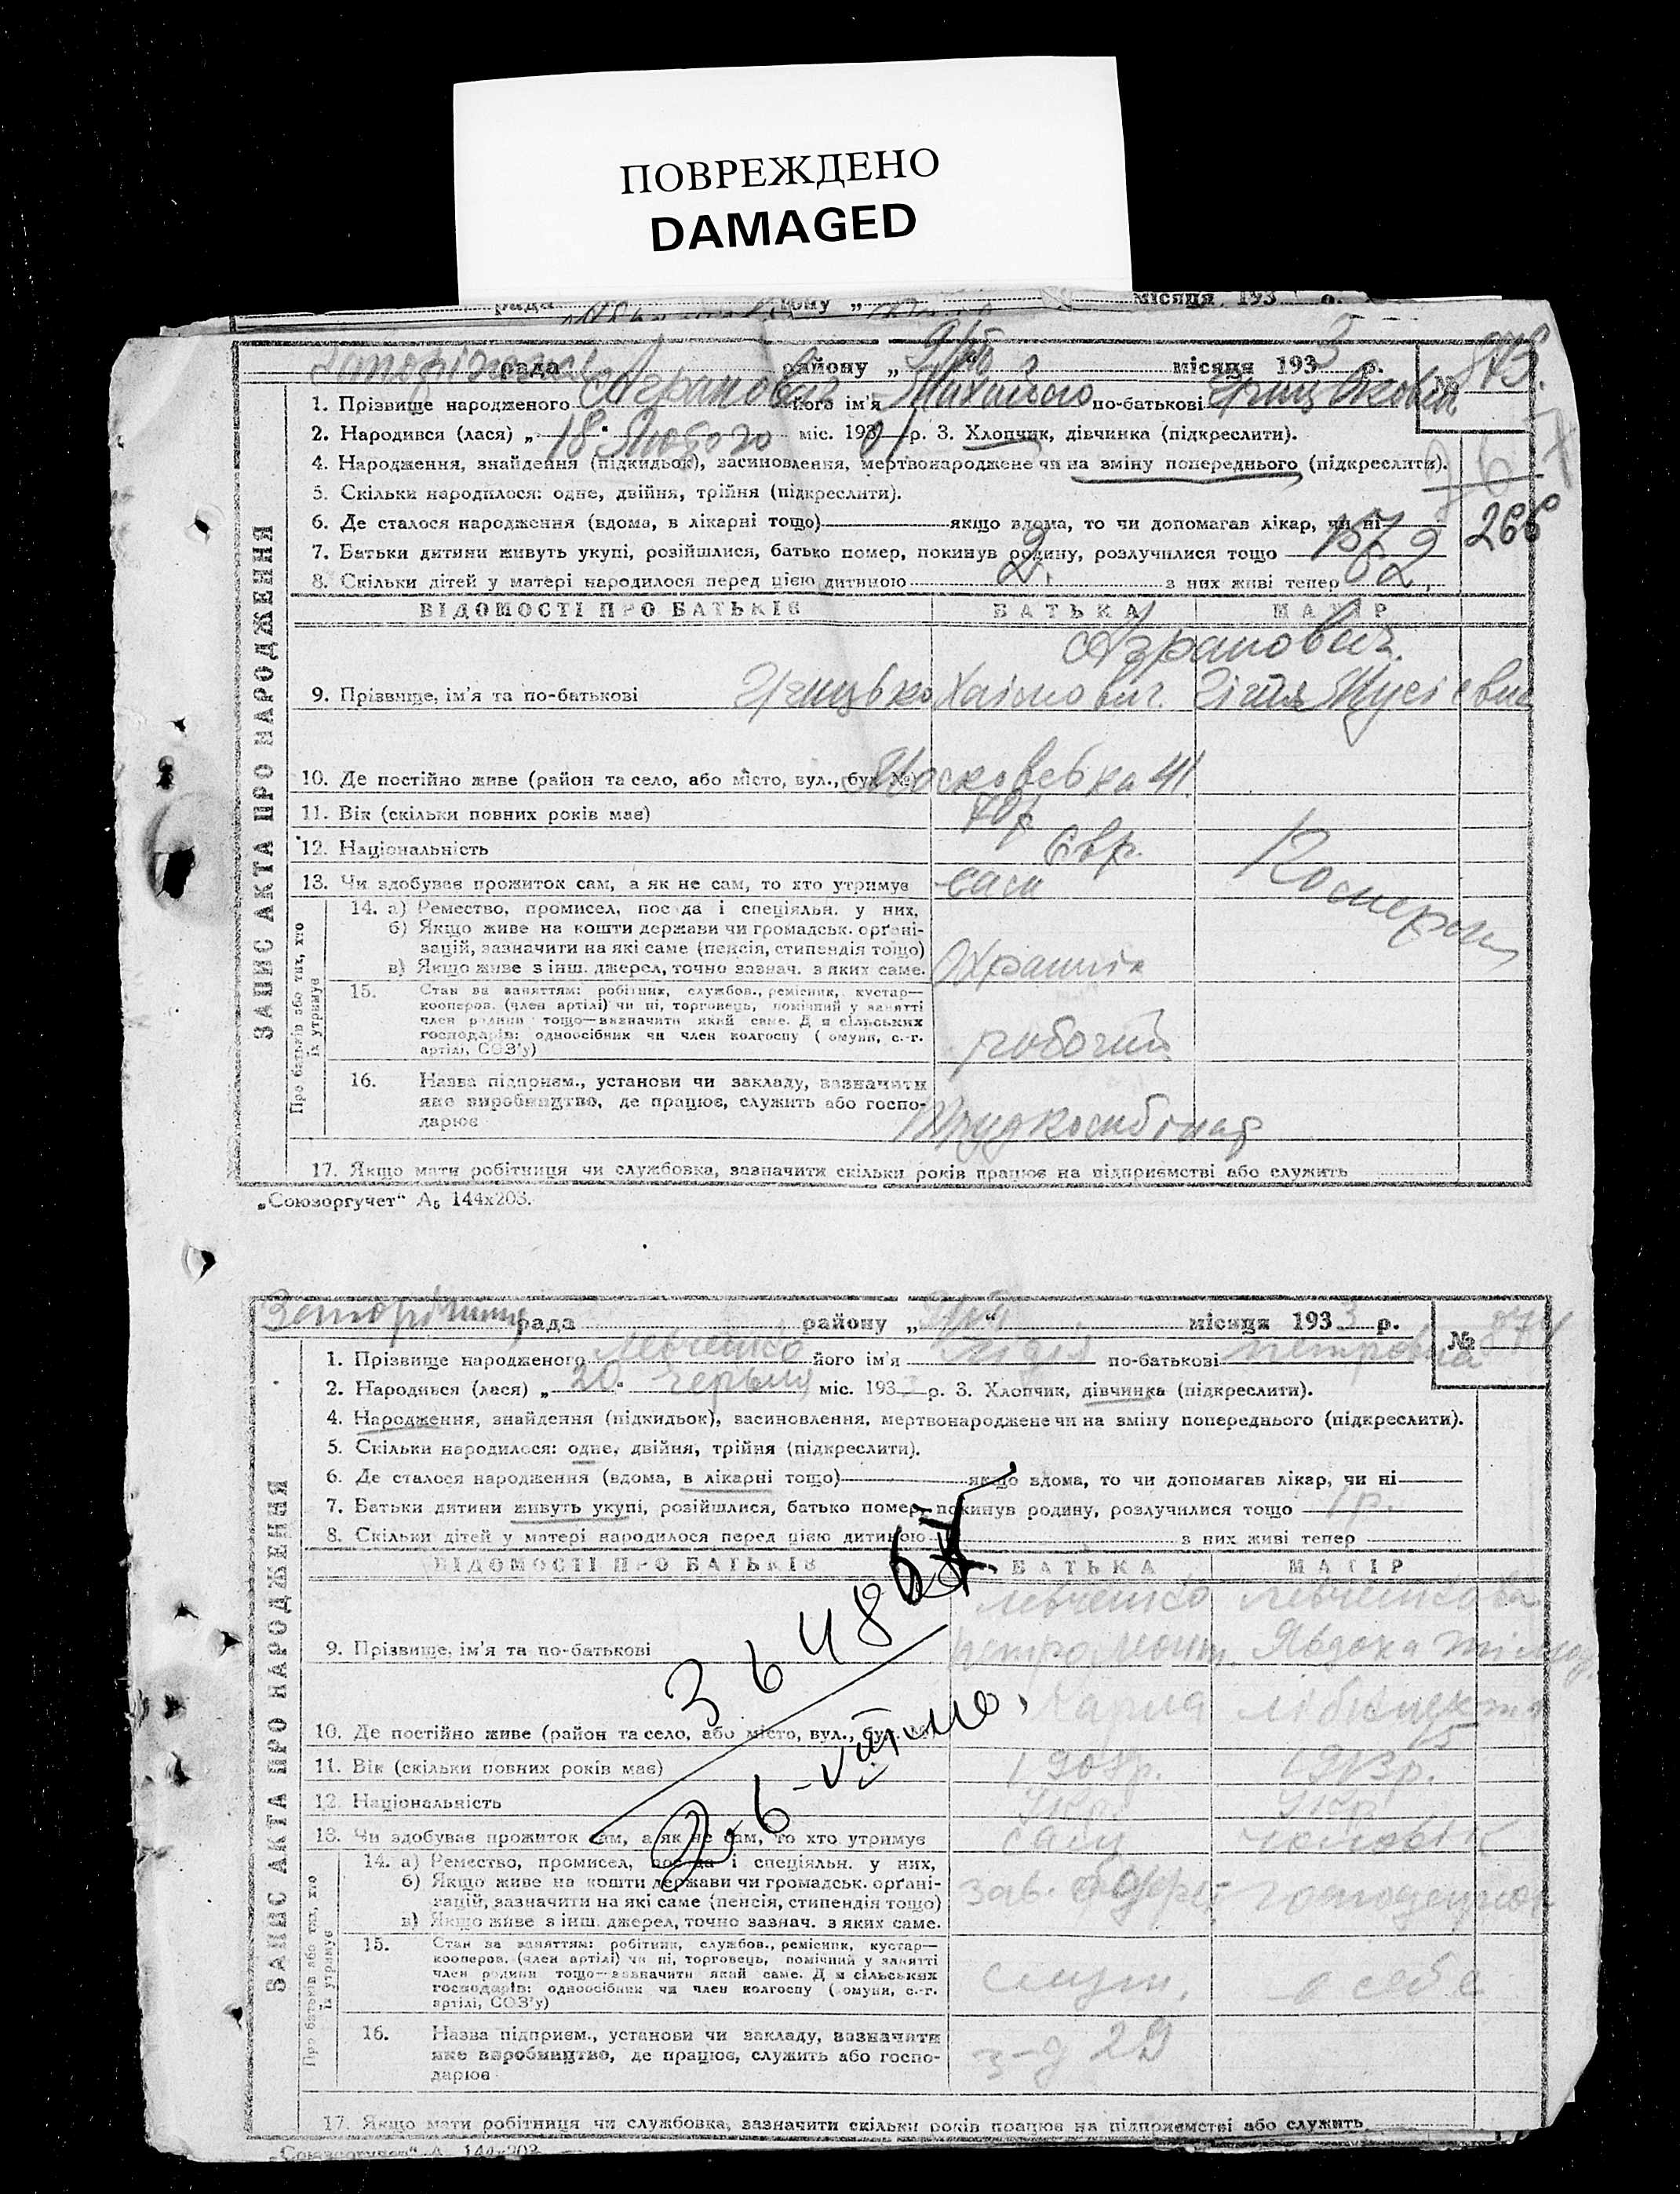 ПОВРЕЖДЕНО
DAMAGED
рада району „ місяця 193 р.
рада району „ місяця 193 3 р. 873.
1. Прізвище народженого Агранович його ім'я Михайло по-батькові
2. Народився (лася) „ 18 Лютого міс. 193 р. 3. Хлопчик, дівчинка (підкреслити).
4. Народження, знайдення (підкидьок), засиновлення, мертвонароджене чи на зміну попереднього (підкреслити).
5. Скільки народилося: одне, двійня, трійня (підкреслити).
6. Де сталося народження (вдома, в лікарні тощо) якщо вдома, то чи допомагав лікар, чи ні
266
7. Батьки дитини живуть укупі, розійшлися, батько помер, покинув родину, розлучилися тощо
8. Скільки дітей у матері народилося перед цією дитиною 2. з них живі тепер 2,
ВІДОМОСТІ ПРО БАТЬКІВ БАТЬКА МАТІР
Агранович.
9. Прізвище, ім'я та по-батькові Хаімович.
10. Де постійно живе (район та село, або місто, вул., буд. №) Московська 41.
11. Вік (скільки повних років має)
12. Національність Євр.
13. Чи здобуває прожиток сам, а як не сам, то хто утримує сам
14. а) Ремество, промисел, посада і спеціяльн. у них,
б) Якщо живе на кошти держави чи громадськ. органі-
зацій, зазначити на які саме (пенсія, стипендія тощо)
в) Якщо живе з інш. джерел, точно зазнач. з яких саме.
15. Стан за заняттям: робітник, службов., ремісник, кустар—
кооперов. (член артілі) чи ні, торговець, помічний у занятті
член родини тощо—визначити який саме. Для сільських
господарів: одноосібник чи член колгоспу (комуни, с.-г.
артілі, СОЗ'у)
робочий
16. Назва підприєм., установи чи закладу, зазначити
яке виробництво, де працює, служить або госпо-
дарює
17. Якщо мати робітниця чи службовка, зазначити скільки років працює на підприємстві або служить
ЗАПИС АКТА ПРО НАРОДЖЕННЯ
Про батьків або тих, хто
їх утримує
„Союзоргучет“ А5 144х203.
рада району „ місяця 193 3 р. № 874
1. Прізвище народженого Левченко його ім'я Лідія по-батькові Петровна
2. Народився (лася) „ 20 “ червня міс. 193 р. 3. Хлопчик, дівчинка (підкреслити).
4. Народження, знайдення (підкидьок), засиновлення, мертвонароджене чи на зміну попереднього (підкреслити).
5. Скільки народилося: одне, двійня, трійня (підкреслити).
6. Де сталося народження (вдома, в лікарні тощо) якщо вдома, то чи допомагав лікар, чи ні
7. Батьки дитини живуть укупі, розійшлися, батько помер, покинув родину, розлучилися тощо 1 р.
8. Скільки дітей у матері народилося перед цією дитиною з них живі тепер
ВІДОМОСТІ ПРО БАТЬКІВ БАТЬКА МАТІР
Левченко Левченкова
9. Прізвище, ім'я та по-батькові Явдоха
Карла Лібкнехта
10. Де постійно живе (район та село, або місто, вул., буд. №) 15
11. Вік (скільки повних років має) 1908р. 1913р.
12. Національність Укр. Укр.
13. Чи здобуває прожиток сам, а як не сам, то хто утримує сам чоловік
14. а) Ремество, промисел, посада і спеціяльн. у них,
б) Якщо живе на кошти держави чи громадськ. органі-
зацій, зазначити на які саме (пенсія, стипендія тощо)
в) Якщо живе з інш. джерел, точно зазнач. з яких саме.
15. Стан за заняттям: робітник, службов., ремісник, кустар—
кооперов. (член артілі) чи ні, торговець, помічний у занятті
член родини тощо—визначити який саме. Для сільських
господарів: одноосібник чи член колгоспу (комуни, с.-г.
артілі, СОЗ'у)
служ. у себе
16. Назва підприєм., установи чи закладу, зазначити
яке виробництво, де працює, служить або госпо-
дарює
з-д 29
17. Якщо мати робітниця чи службовка, зазначити скільки років працює на підприємстві або служить
ЗАПИС АКТА ПРО НАРОДЖЕННЯ
Про батьків або тих, хто
їх утримує
„Союзоргучет“ А 144х203